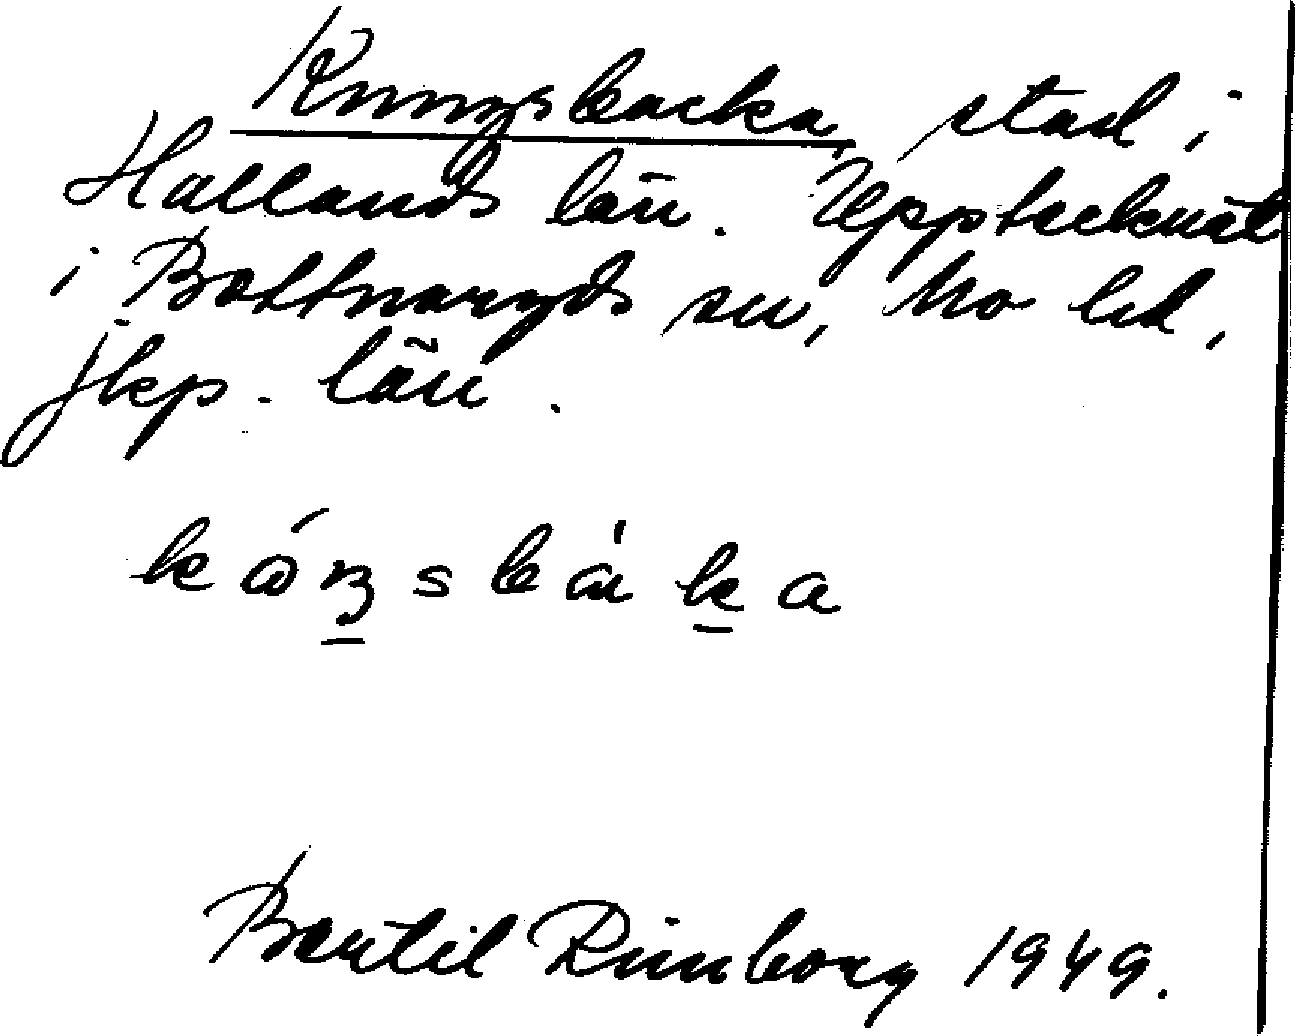 Kungsbacka, stad i
Hallands län. Upptecknat
i Bottnaryds sn, Mo hd,
Jkp. län.
kóŋsbàka
Bertil Rimborg 1949.